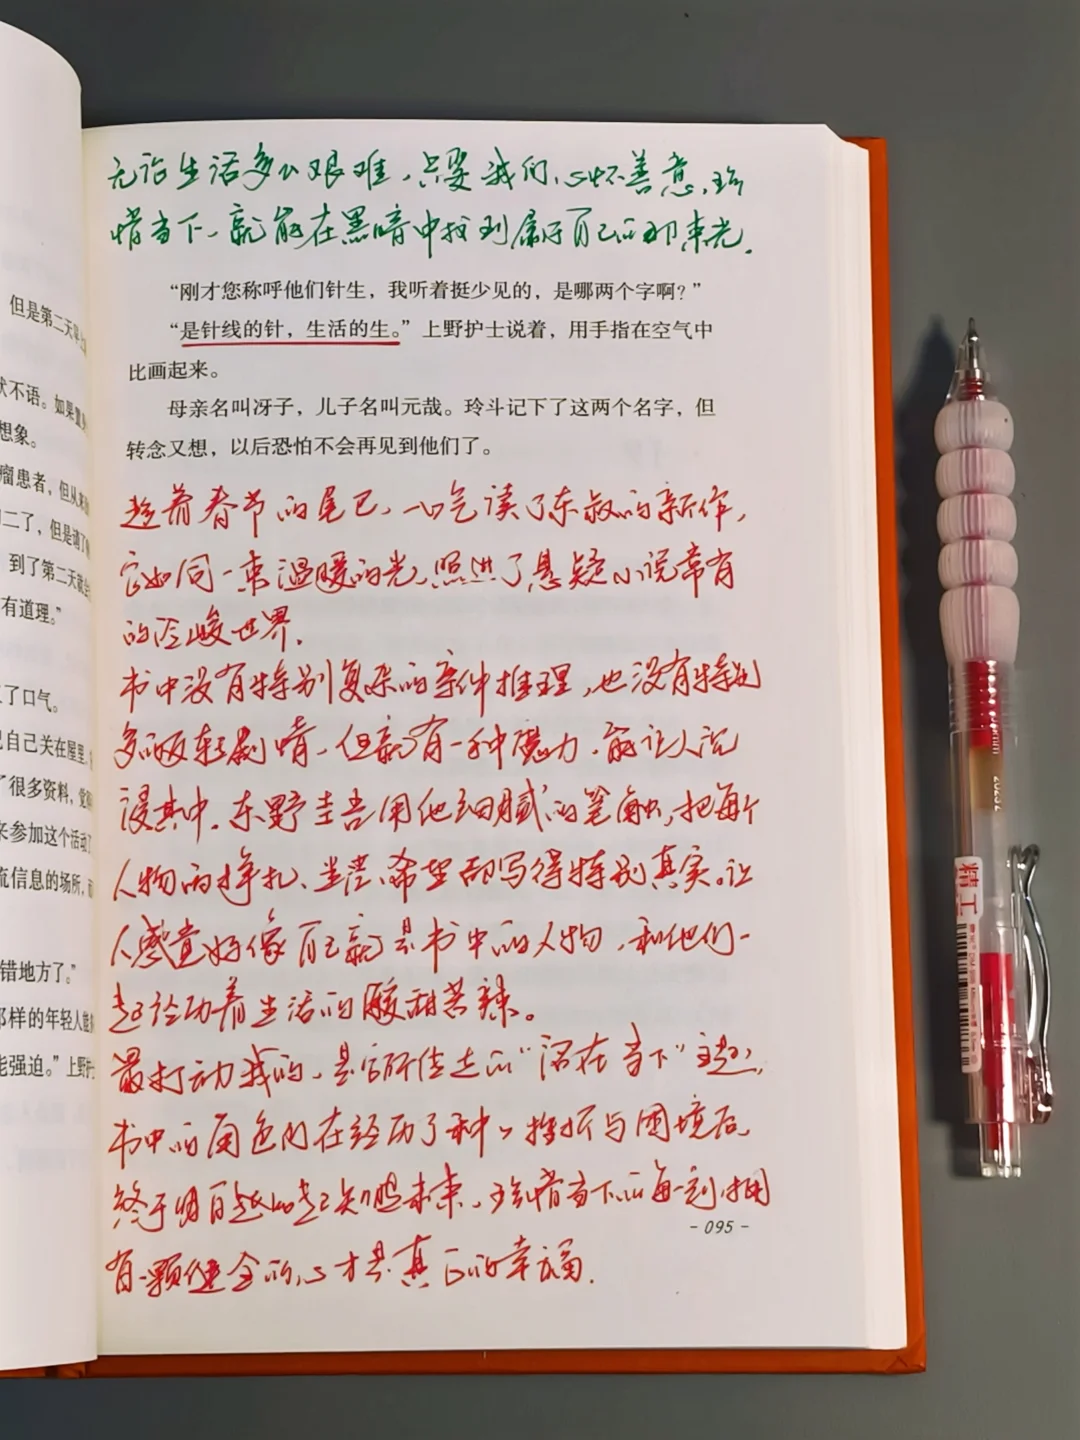 无论生活多么艰难，只要我们心怀善意，珍
惜当下，就能在黑暗中找到属于自己的那束光。
但是第二天早
“刚才您称呼他们针生，我听着挺少见的，是哪两个字啊？”
“是针线的针，生活的生。”上野护士说着，用手指在空气中
比画起来。
母亲名叫冴子，儿子名叫元哉。玲斗记下了这两个名字，但
转念又想，以后恐怕不会再见到他们了。
状不语。如果置
想象。
瘤患者，但从来
二了，但是请了
到了第二天就
有道理。”
了口气。
己自己关在屋里，
了很多资料，
来参加这个活动
流信息的场所，
错地方了。”
那样的年轻人能
能强迫。”上野护
趁着春节的尾巴，一口气读了东叔的新作，
它如同一束温暖的光，照进了悬疑小说常有
的冷峻世界。
书中没有特别复杂的案件推理，也没有特别
多的反转剧情，但就有一种魔力，能让人沉
浸其中。东野圭吾用他细腻的笔触，把每个
人物的挣扎、迷茫、希望都写得特别真实。让
人感觉好像自己就是书中的人物，和他们一
起经历着生活的酸甜苦辣。
最打动我的，是它所传达的“活在当下”主题，
书中的角色们在经历了种种挫折与困境后，
终于明白比起知晓未来，珍惜当下的每一刻，拥
有一颗健全的心才是真正的幸福。
- 095 -
精工